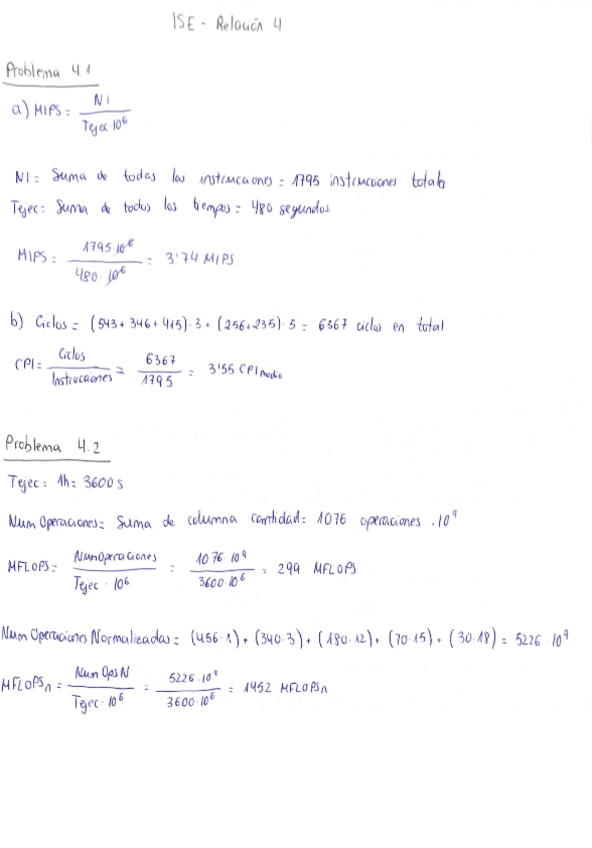 ISE - Relación 4
Problema 4.1
a) MIPS = NI / Tejec·10^6
NI: Suma de todas las instrucciones = 1795 instrucciones totales
Tejec: Suma de todos los tiempos = 480 segundos
MIPS = 1795·10^6 / 480·10^6 = 3'74 MIPS
b) Ciclos = (543 + 346 + 415)·3 + (256 + 235)·5 = 6367 ciclos en total
CPI = Ciclos / Instrucciones = 6367 / 1795 = 3'55 CPI medio
Problema 4.2
Tejec = 1h = 3600 s
Num Operaciones = Suma de columna cantidad = 1076 operaciones ·10^9
MFLOPS = NumOperaciones / Tejec · 10^6 = 1076·10^9 / 3600·10^6 = 299 MFLOPS
Num Operaciones Normalizadas = (456·1) + (340·3) + (180·12) + (70·15) + (30·18) = 5226·10^9
MFLOPSn = Num Ops N / Tejec·10^6 = 5226·10^9 / 3600·10^6 = 1452 MFLOPSn